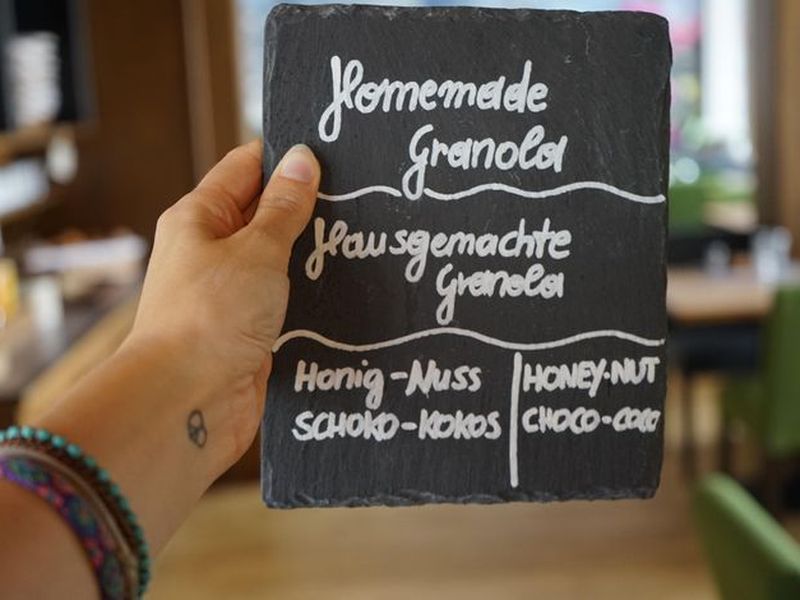 Homemade
Granola
Hausgemachte
Granola
Honig-Nuss
SCHOKO-KOKOS
HONEY-NUT
CHOCO-COCO